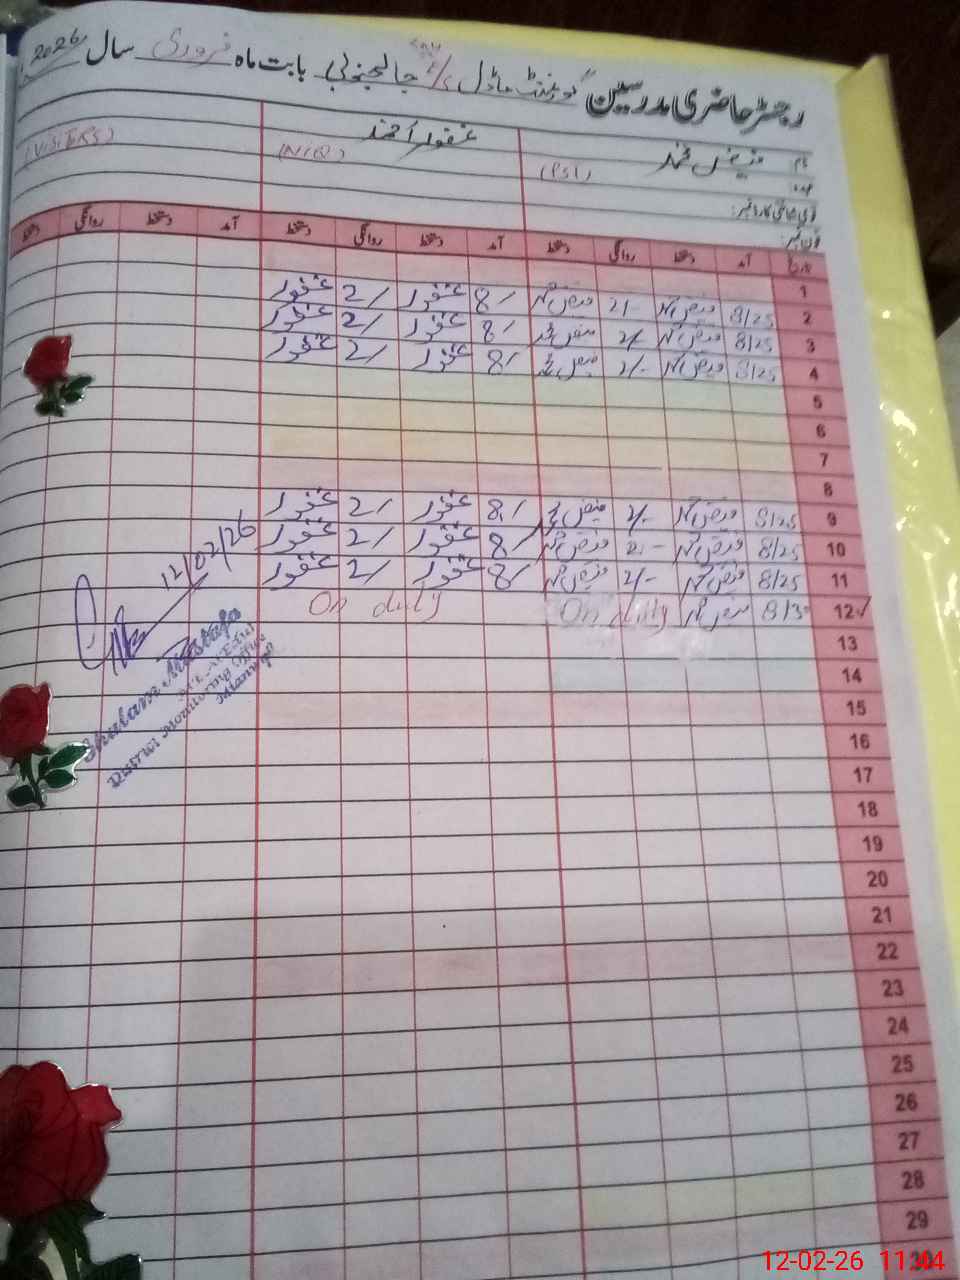 رجسٹر حاضری مدرسین گورنمنٹ ماڈل بابت ماہ فروری سال 2026
نام فیض محمد غفور احمد
عہدہ (PST) (NIQ) (VISITERS)
قومی شناختی کارڈ نمبر:
فون نمبر:
تاریخ آمد دستخط روانگی دستخط آمد دستخط روانگی دستخط آمد دستخط روانگی دستخط
1
2 8/25 فیض محمد 2/- فیض محمد 8/ غفور 2/ غفور
3 8/25 فیض محمد 2/- فیض محمد 8/ غفور 2/ غفور
4 8/25 فیض محمد 2/- فیض محمد 8/ غفور 2/ غفور
5
6
7
8
9 8/25 فیض محمد 2/- فیض محمد 8/ غفور 2/ غفور
10 8/25 فیض محمد 2/- فیض محمد 8/ غفور 2/ غفور
11 8/25 فیض محمد 2/- فیض محمد 8/ غفور 2/ غفور
12 8/30 فیض محمد On duty On duty
12/02/26
Ghulam Mustafa
District Monitoring Office
Mianwali
13
14
15
16
17
18
19
20
21
22
23
24
25
26
27
28
29
30
12-02-26 11:44